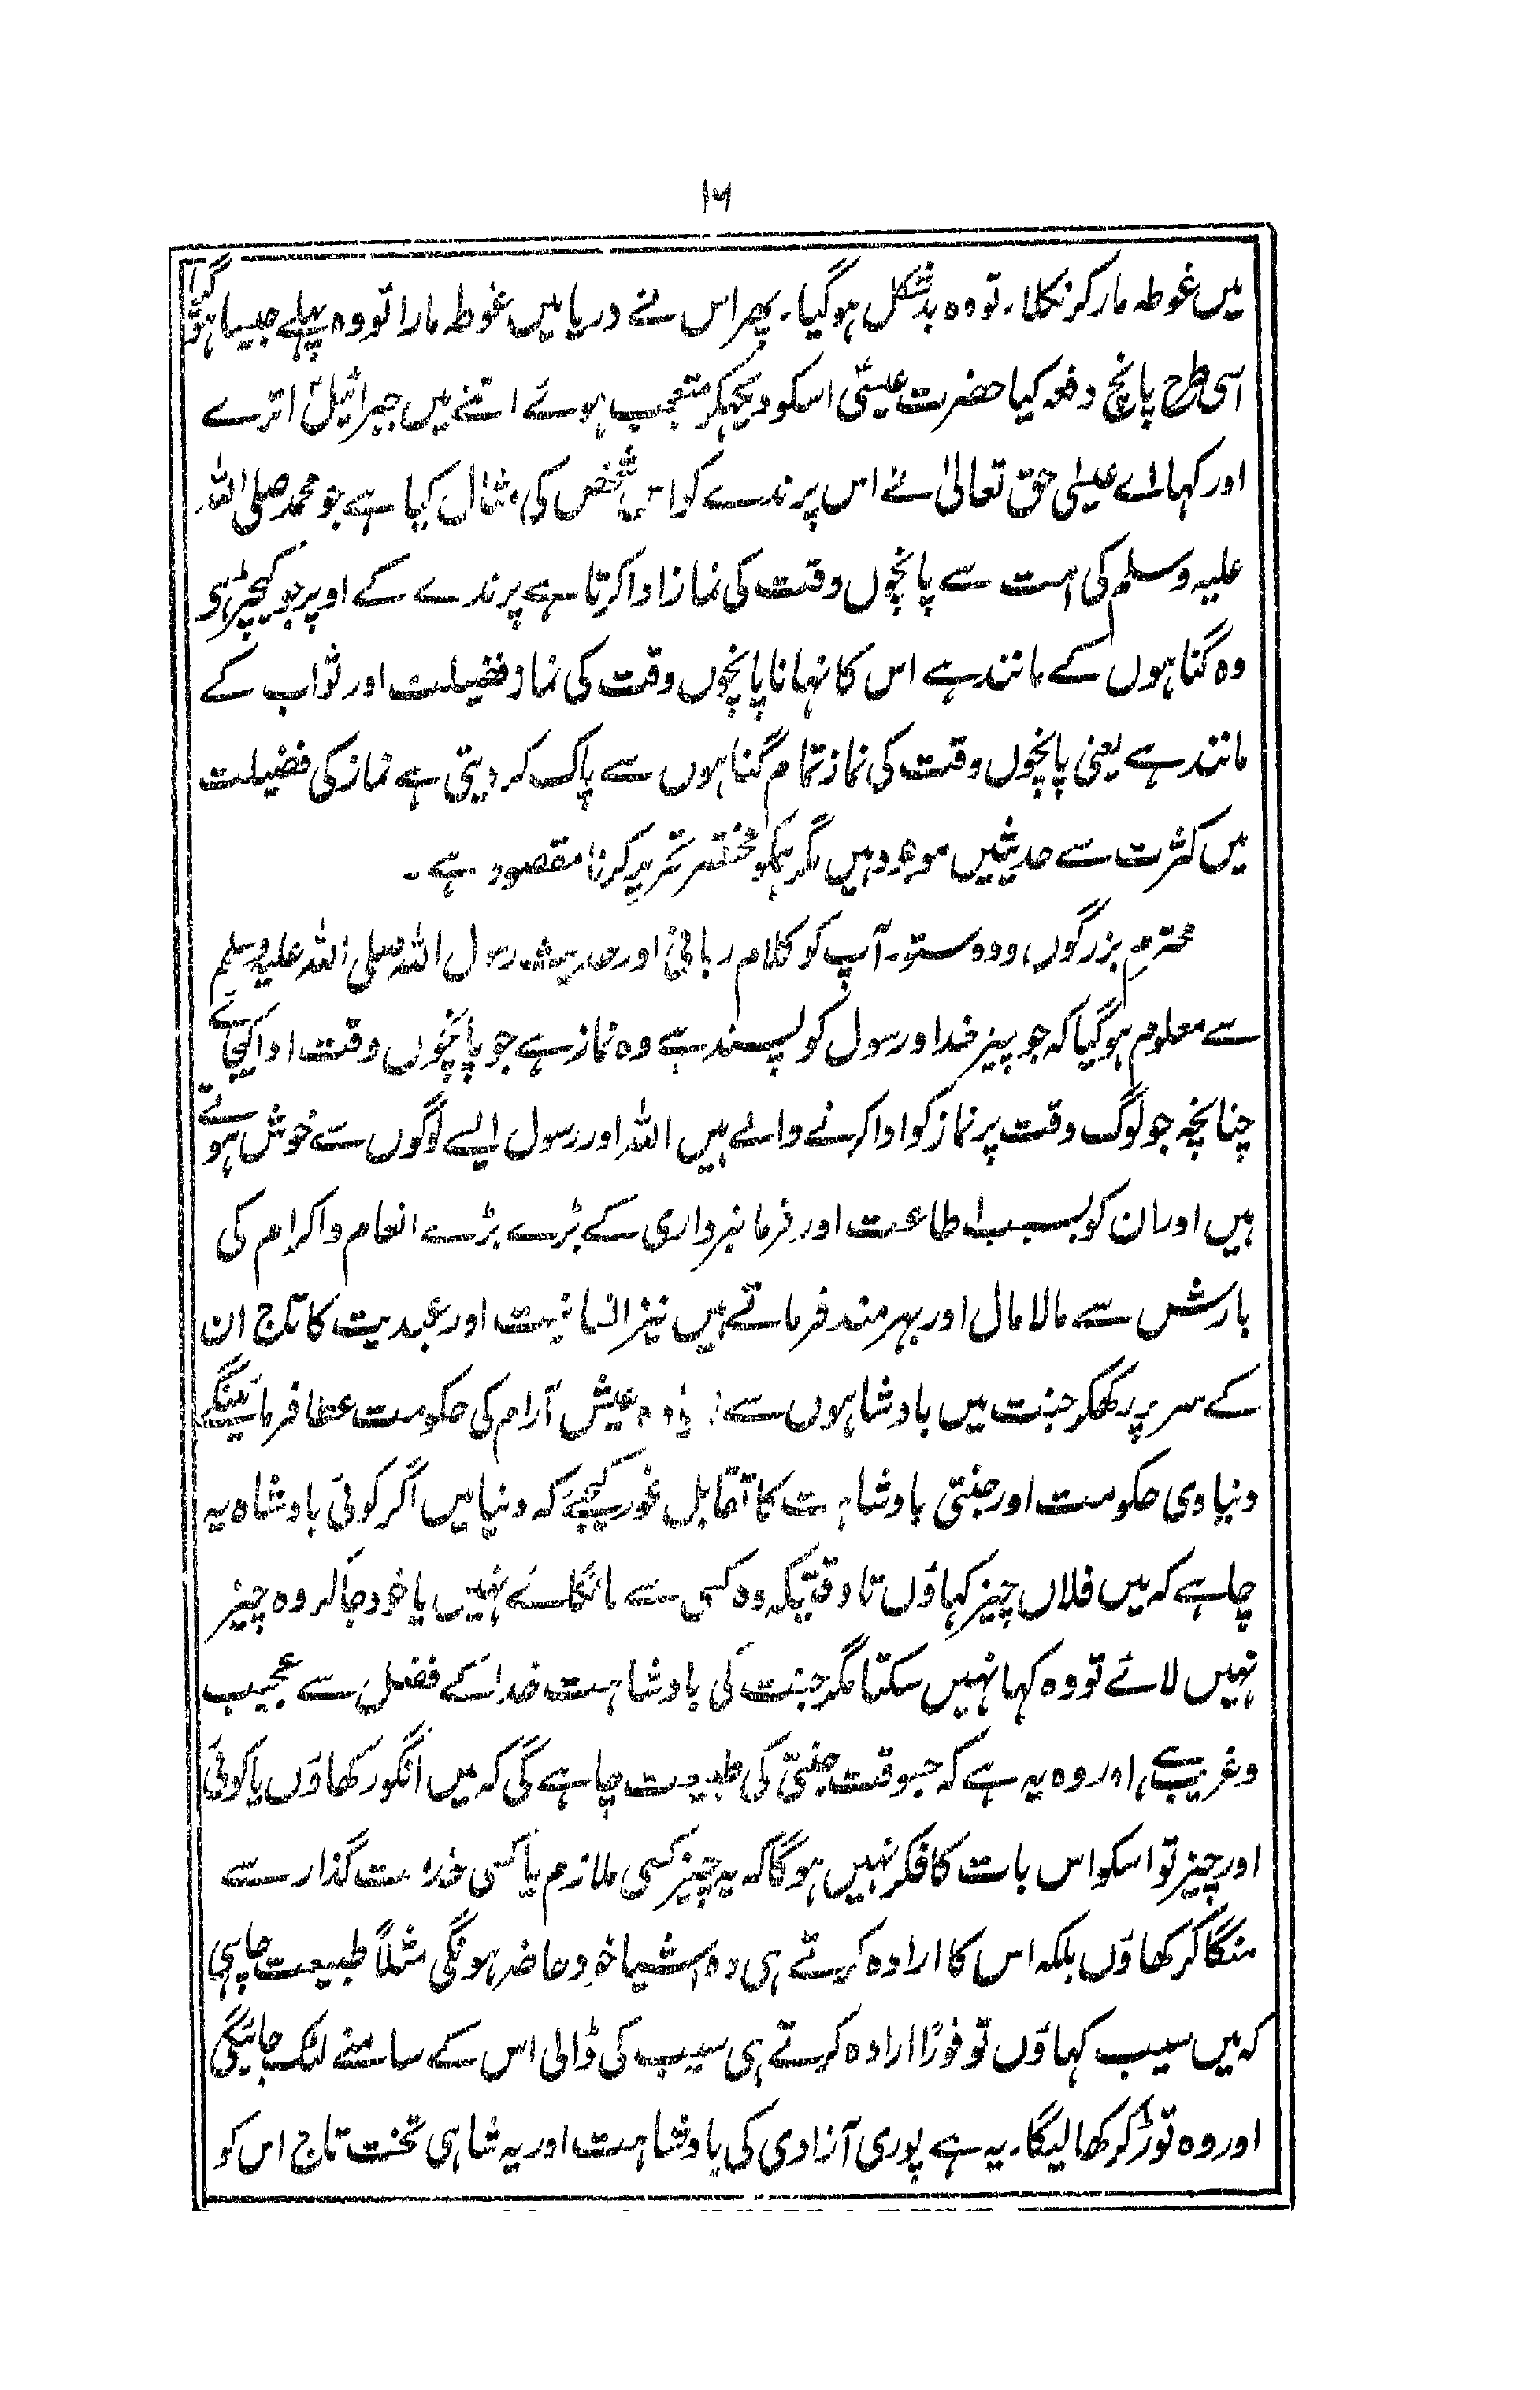 ۱۶
میں غوطہ مار کر نکلا۔ تو وہ بد شکل ہو گیا۔ پھر اس نے دریا میں غوطہ مارا تو وہ پہلے جیسا ہو گیا
اسی طرح پانچ دفعہ کیا حضرت عیسیٰؑ اسکو دیکھکر متعجب ہوئے اتنے میں جبرائیلؑ اترے
اور کہا اے عیسٰی حق تعالیٰ نے اس پرندے کو اس شخص کی مثال کیا ہے جو محمد صلی اللہ
علیہ وسلم کی امت سے پانچوں وقت کی نماز ادا کرتا ہے پرندے کے اوپر جو کیچڑ ہی
وہ گناہوں کے مانند ہے اس کا نہانا پانچوں وقت کی نماز و فضیلت اور ثواب کے
مانند ہے یعنی پانچوں وقت کی نماز تمام گناہوں سے پاک کر دیتی ہے نماز کی فضیلت
میں کثرت سے حدیثیں موجود ہیں مگر ہمکو مختصر تحریر کرنا مقصود ہے۔
محترم بزرگوں، ودوستو۔ آپ کو کلام ربانی اور حدیث رسول اللہ صلی اللہ علیہ وسلم
سے معلوم ہو گیا کہ جو چیز خدا و رسول کو پسند ہے وہ نماز ہے جو پانچوں وقت ادا کیجائے
چنانچہ جو لوگ وقت پر نماز کو ادا کرنے والے ہیں اللہ اور رسول ایسے لوگوں سے خوش ہوتے
ہیں اور ان کو بسبب اطاعت اور فرمانبرداری کے بڑے بڑے انعام و اکرام کی
بارش سے مالا مال اور بہرمند فرماتے ہیں نیز انسانیت اور عبدیت کا تاج ان
کے سر پر رکھکر جنت میں بادشاہوں سے زیادہ عیش آرام کی حکومت عطا فرمائینگے
دنیاوی حکومت اور جنتی بادشاہت کا تقابل غور کیجئے کہ دنیا میں اگر کوئی بادشاہ یہ
چاہے کہ میں فلاں چیز کہاؤں تاوقتیکہ وہ کسی سے مانگے نہیں یا خود جا کر وہ چیز
نہیں لائے تو وہ کہا نہیں سکتا مگر جنت کی بادشاہت خدا کے فضل سے عجیب
وغریب ہے، اور وہ یہ ہے کہ جسوقت جنتی کی طبیعت چاہے گی کہ میں انگور کھاؤں یا کوئی
اور چیز تو اسکو اس بات کا فکر نہیں ہوگا کہ یہ چیز کسی ملازم یا کسی خدمت گذار سے
منگا کر کھاؤں بلکہ اس کا ارادہ کرتے ہی وہ اشیا خود حاضر ہونگی مثلاً طبیعت چاہی
کہ میں سیب کہاؤں تو فوراً ارادہ کرتے ہی سیب کی ڈالی اس کے سامنے لٹک جائیگی
اور وہ توڑ کر کھا لیگا۔ یہ ہے پوری آزادی کی بادشاہت اور یہ شاہی تخت تاج اس کو